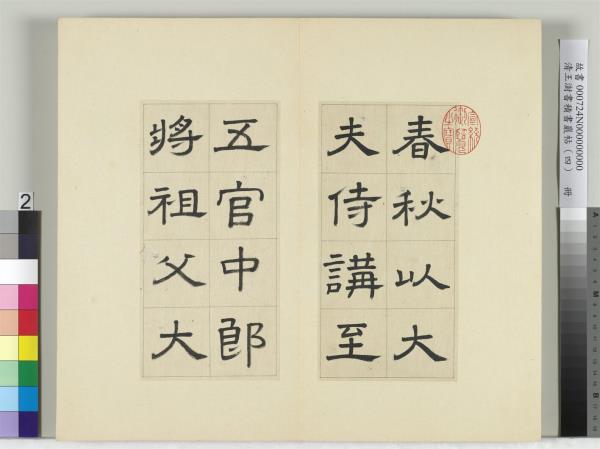 春秋以大
夫侍講至
五官中郎
將祖父大
故書 000724N000000000
清王澍書積書巖帖（四） 冊
2
A
M
B